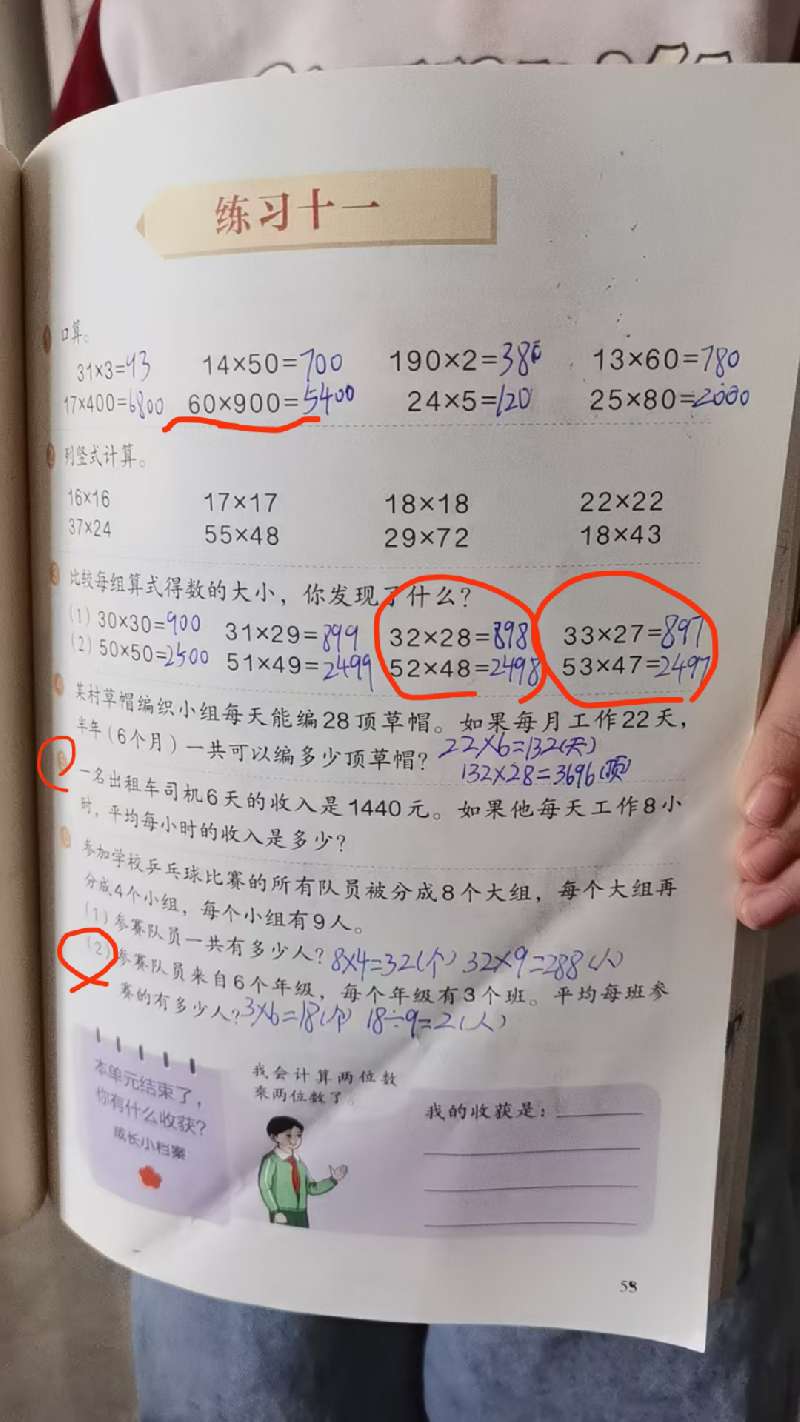 练习十一
1 口算。
31×3=93 14×50=700 190×2=380 13×60=780
17×400=6800 60×900=5400 24×5=120 25×80=2000
2 列竖式计算。
16×16 17×17 18×18 22×22
37×24 55×48 29×72 18×43
3 比较每组算式得数的大小，你发现了什么？
(1) 30×30=900 31×29=899 32×28=898 33×27=897
(2) 50×50=2500 51×49=2499 52×48=2498 53×47=2497
4 某村草帽编织小组每天能编28顶草帽。如果每月工作22天，
半年(6个月)一共可以编多少顶草帽？ 22×6=132(天)
132×28=3696(顶)
一名出租车司机6天的收入是1440元。如果他每天工作8小
时，平均每小时的收入是多少？
参加学校乒乓球比赛的所有队员被分成8个大组，每个大组再
分成4个小组，每个小组有9人。
(1) 参赛队员一共有多少人？ 8×4=32(个) 32×9=288(人)
(2) 参赛队员来自6个年级，每个年级有3个班。平均每班参
赛的有多少人？ 3×6=18(个) 18÷9=2(人)
本单元结束了，
你有什么收获？
成长小档案
我会计算两位数
乘两位数了。
我的收获是：
58